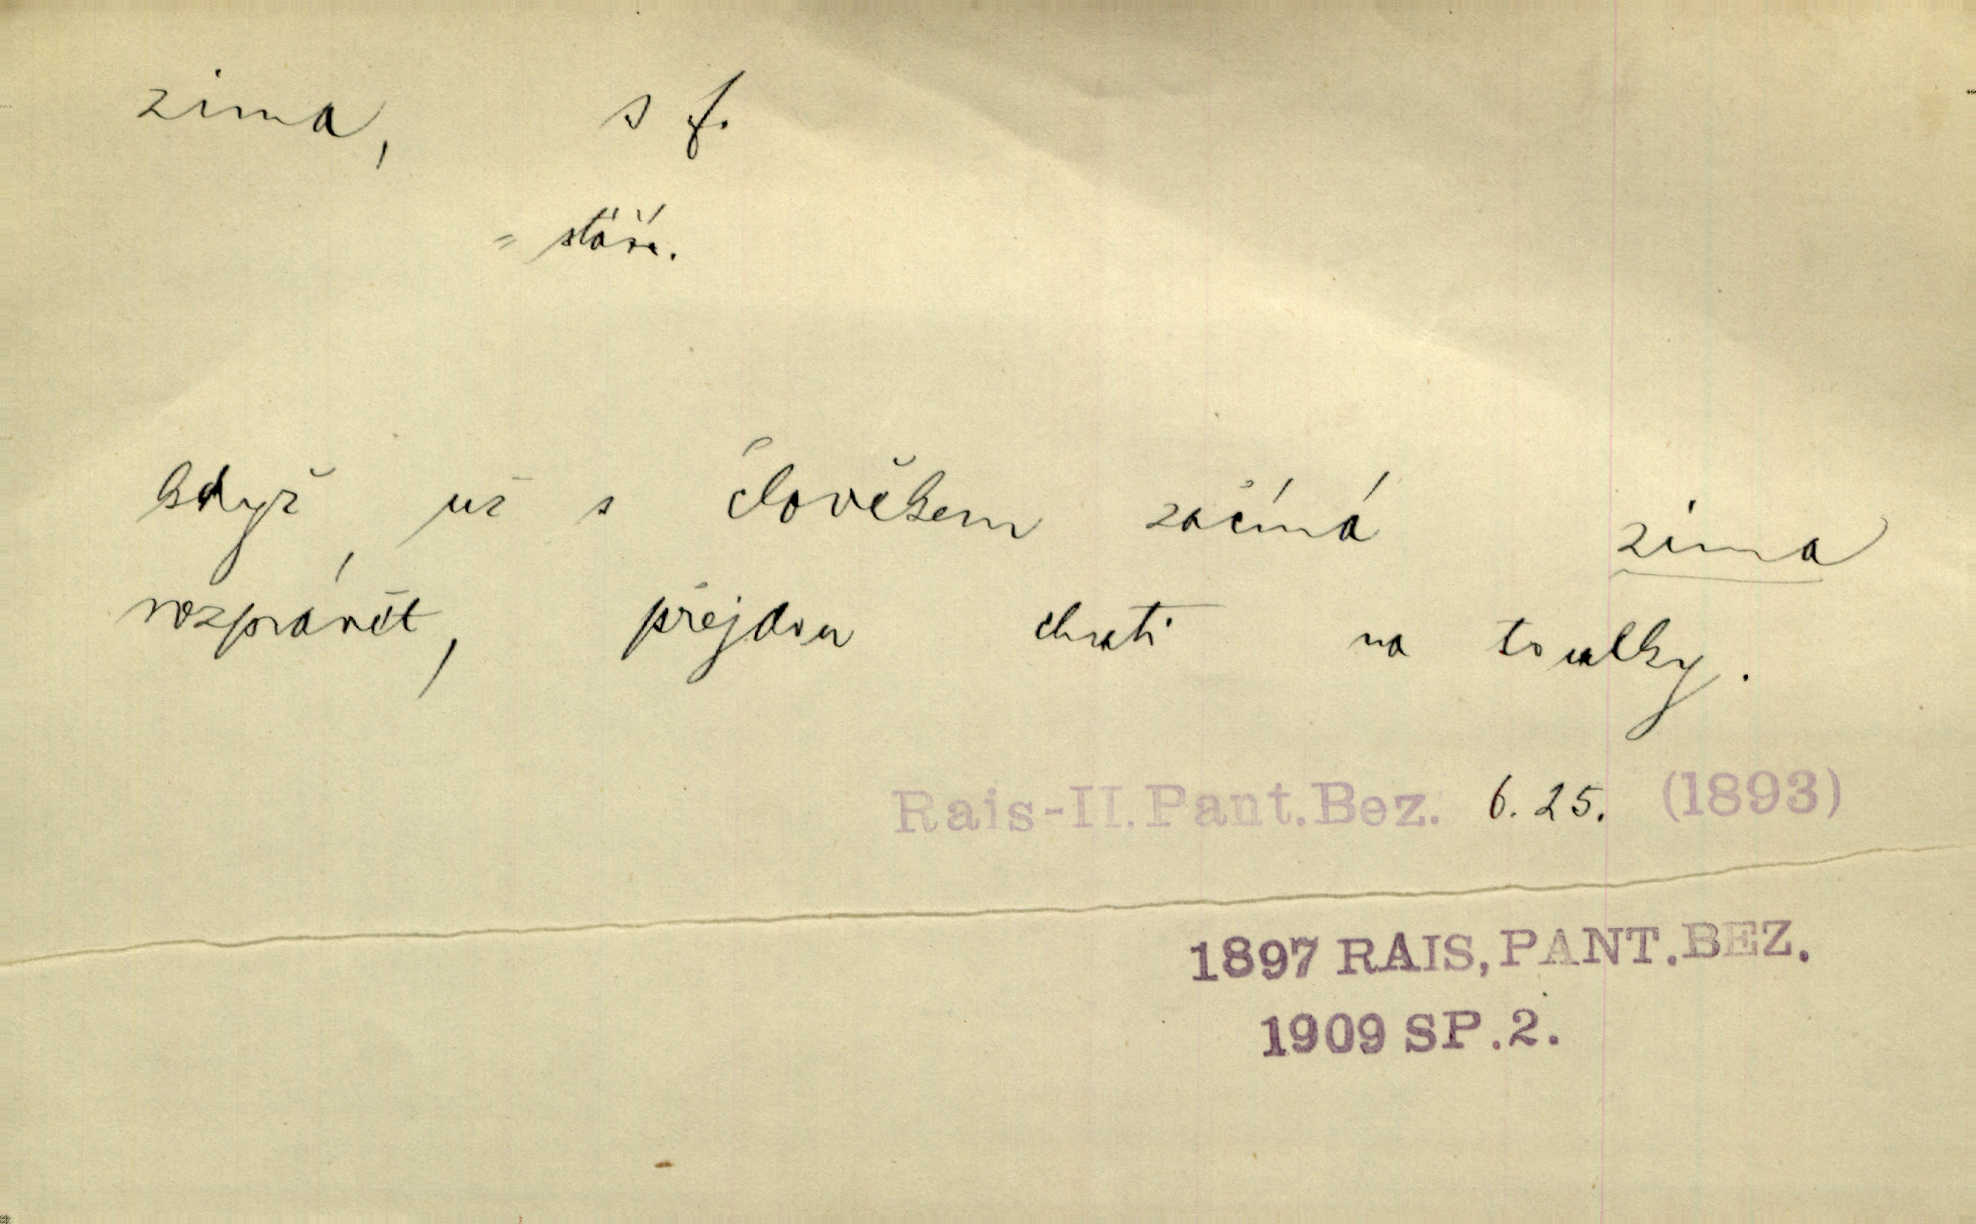 zima, s f.
= stáří.
Když už s člověkem začíná zima
rozprávět, přejdou chuti na toulky.
Rais-II.Pant.Bez. 6.25. (1893)
1897 RAIS, PANT.BEZ.
1909 SP.2.